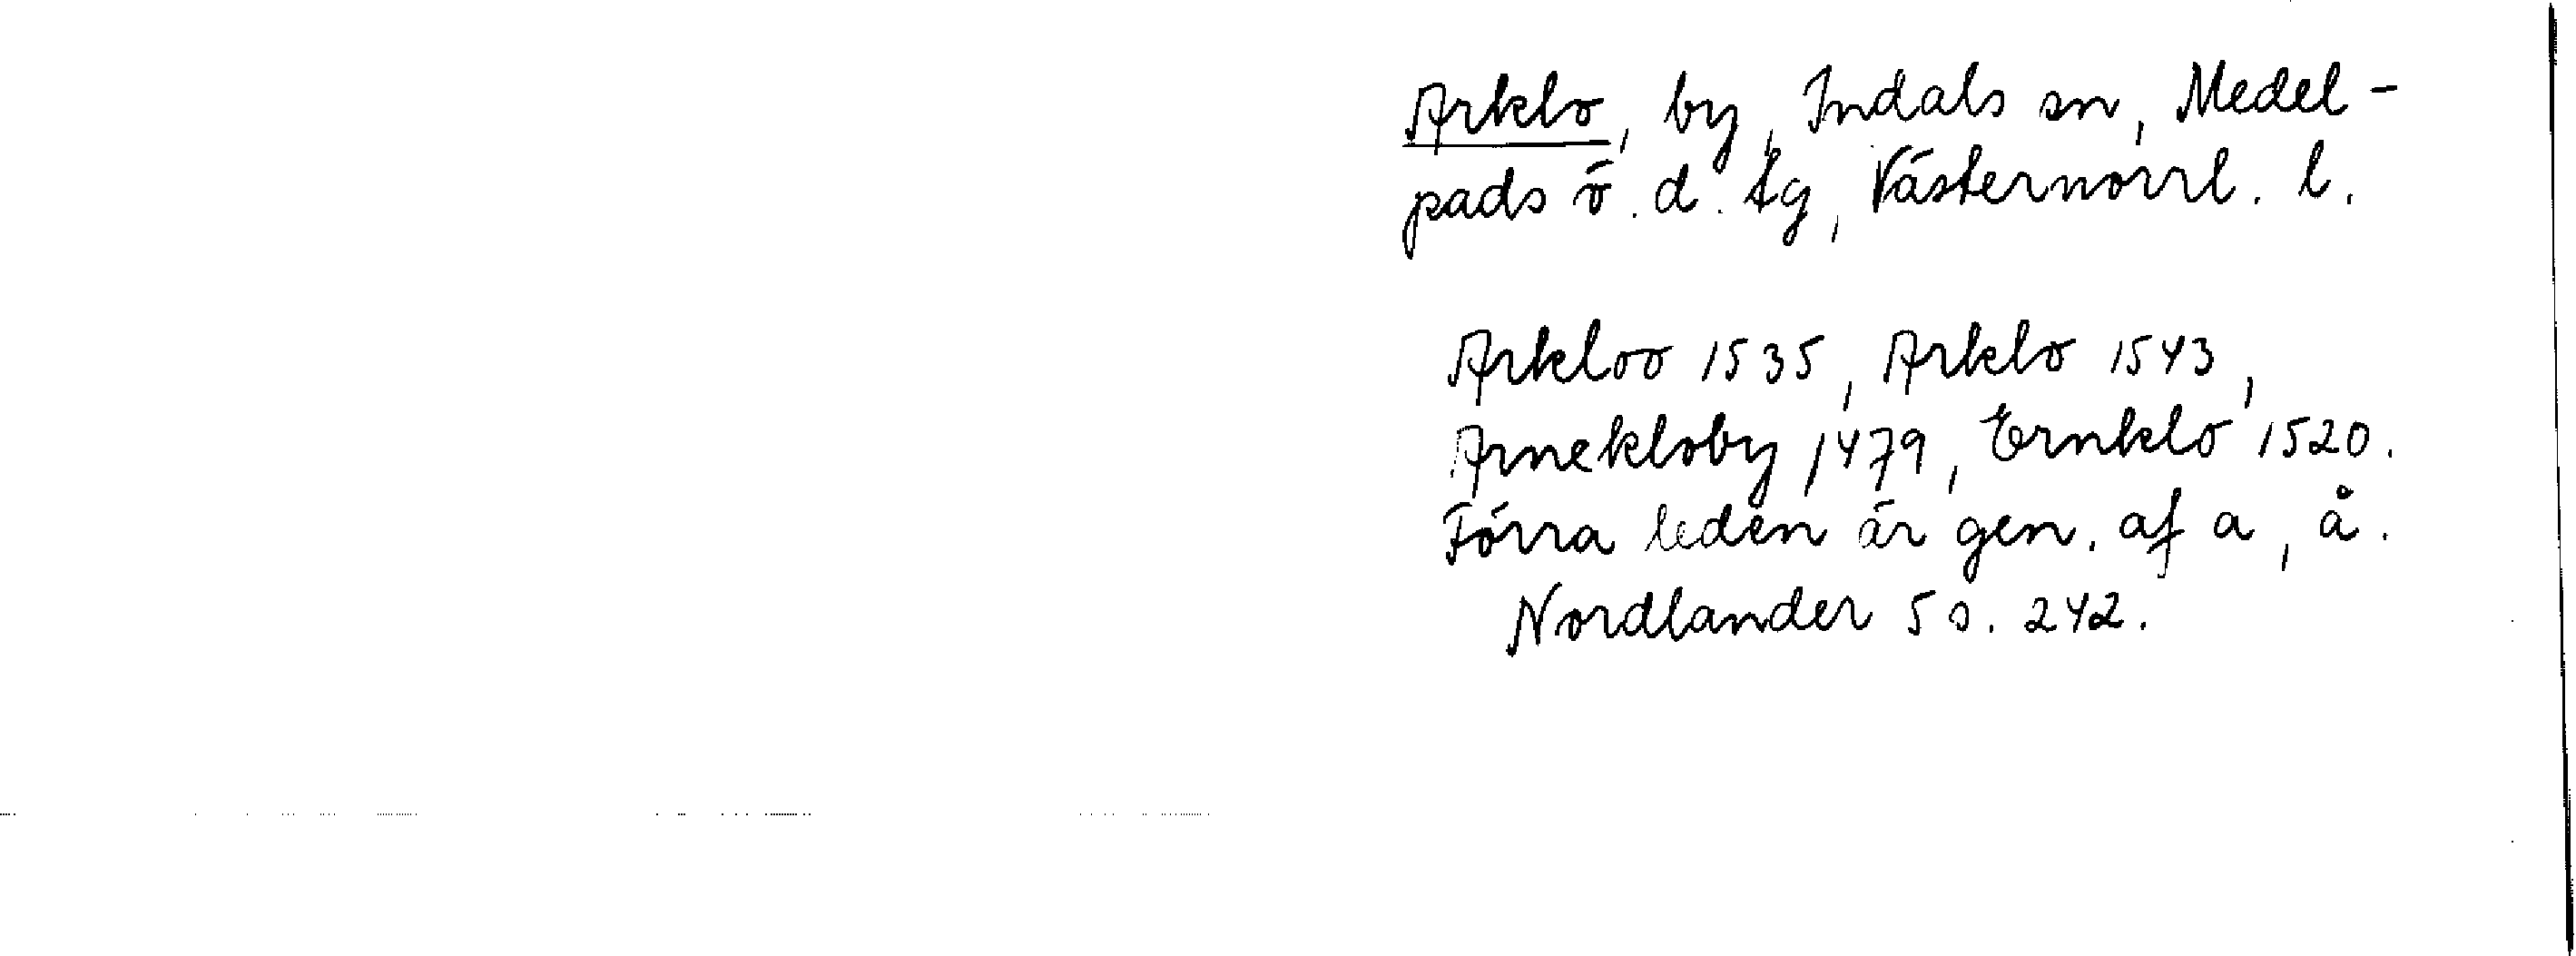 Arklo, by, Indals sn, Medel-
pads ö. d. tg, Västernorrl. l.
Arkloo 1535, Arklo 1543,
Arnekloby 1479, Ernklo 1520.
Förra leden är gen. af a, å.
Nordlander 5 s. 242.